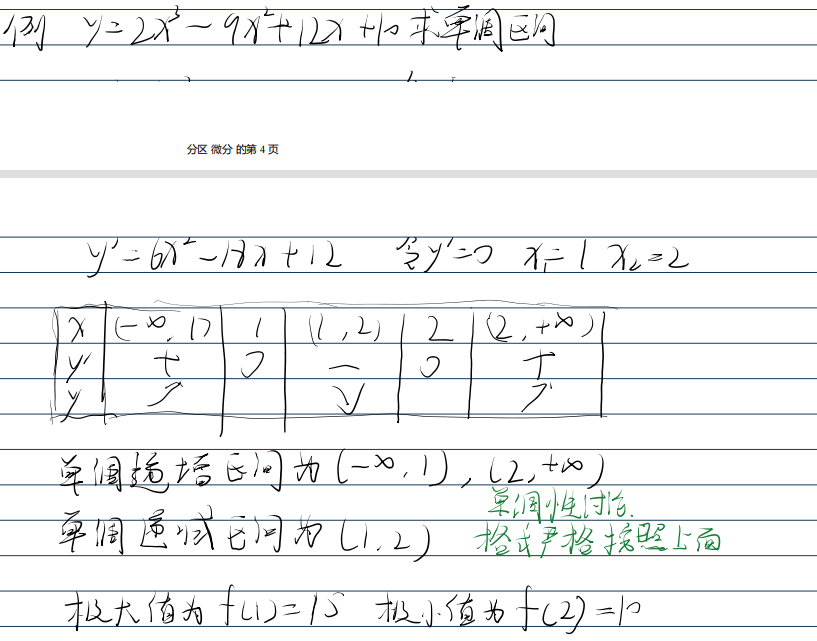 例 y=2x³-9x²+12x+10 求单调区间
分区 微分 的第 4 页
y'=6x²-18x+12 令y'=0 x₁=1 x₂=2
x (-∞,1) 1 (1,2) 2 (2,+∞)
y' + 0 - 0 +
y ↗ ↘ ↗
单调递增区间为(-∞,1),(2,+∞)
单调性讨论.
单调递减区间为(1,2)
格式严格按照上面
极大值为f(1)=15 极小值为f(2)=10